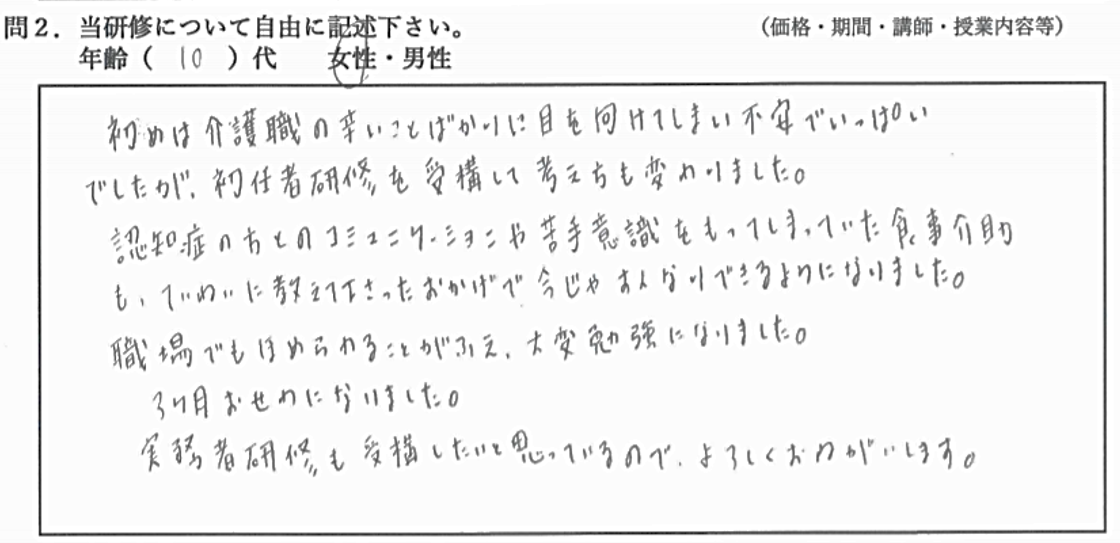 問2．当研修について自由に記述下さい。　（価格・期間・講師・授業内容等）
年齢（ 10 ）代　女性・男性
初めは介護職の辛いことばかりに目を向けてしまい不安でいっぱい
でしたが、初任者研修を受構して考え方も変わりました。
認知症の方とのコミュニケーションや苦手意識をもってしまっていた食事介助
も、ていねいに教えて下さったおかげで今じゃすんなりできるようになりました。
職場でもほめられることがふえ、大変勉強になりました。
3ヶ月おせわになりました。
実務者研修も受構したいと思っているので、よろしくおねがいします。